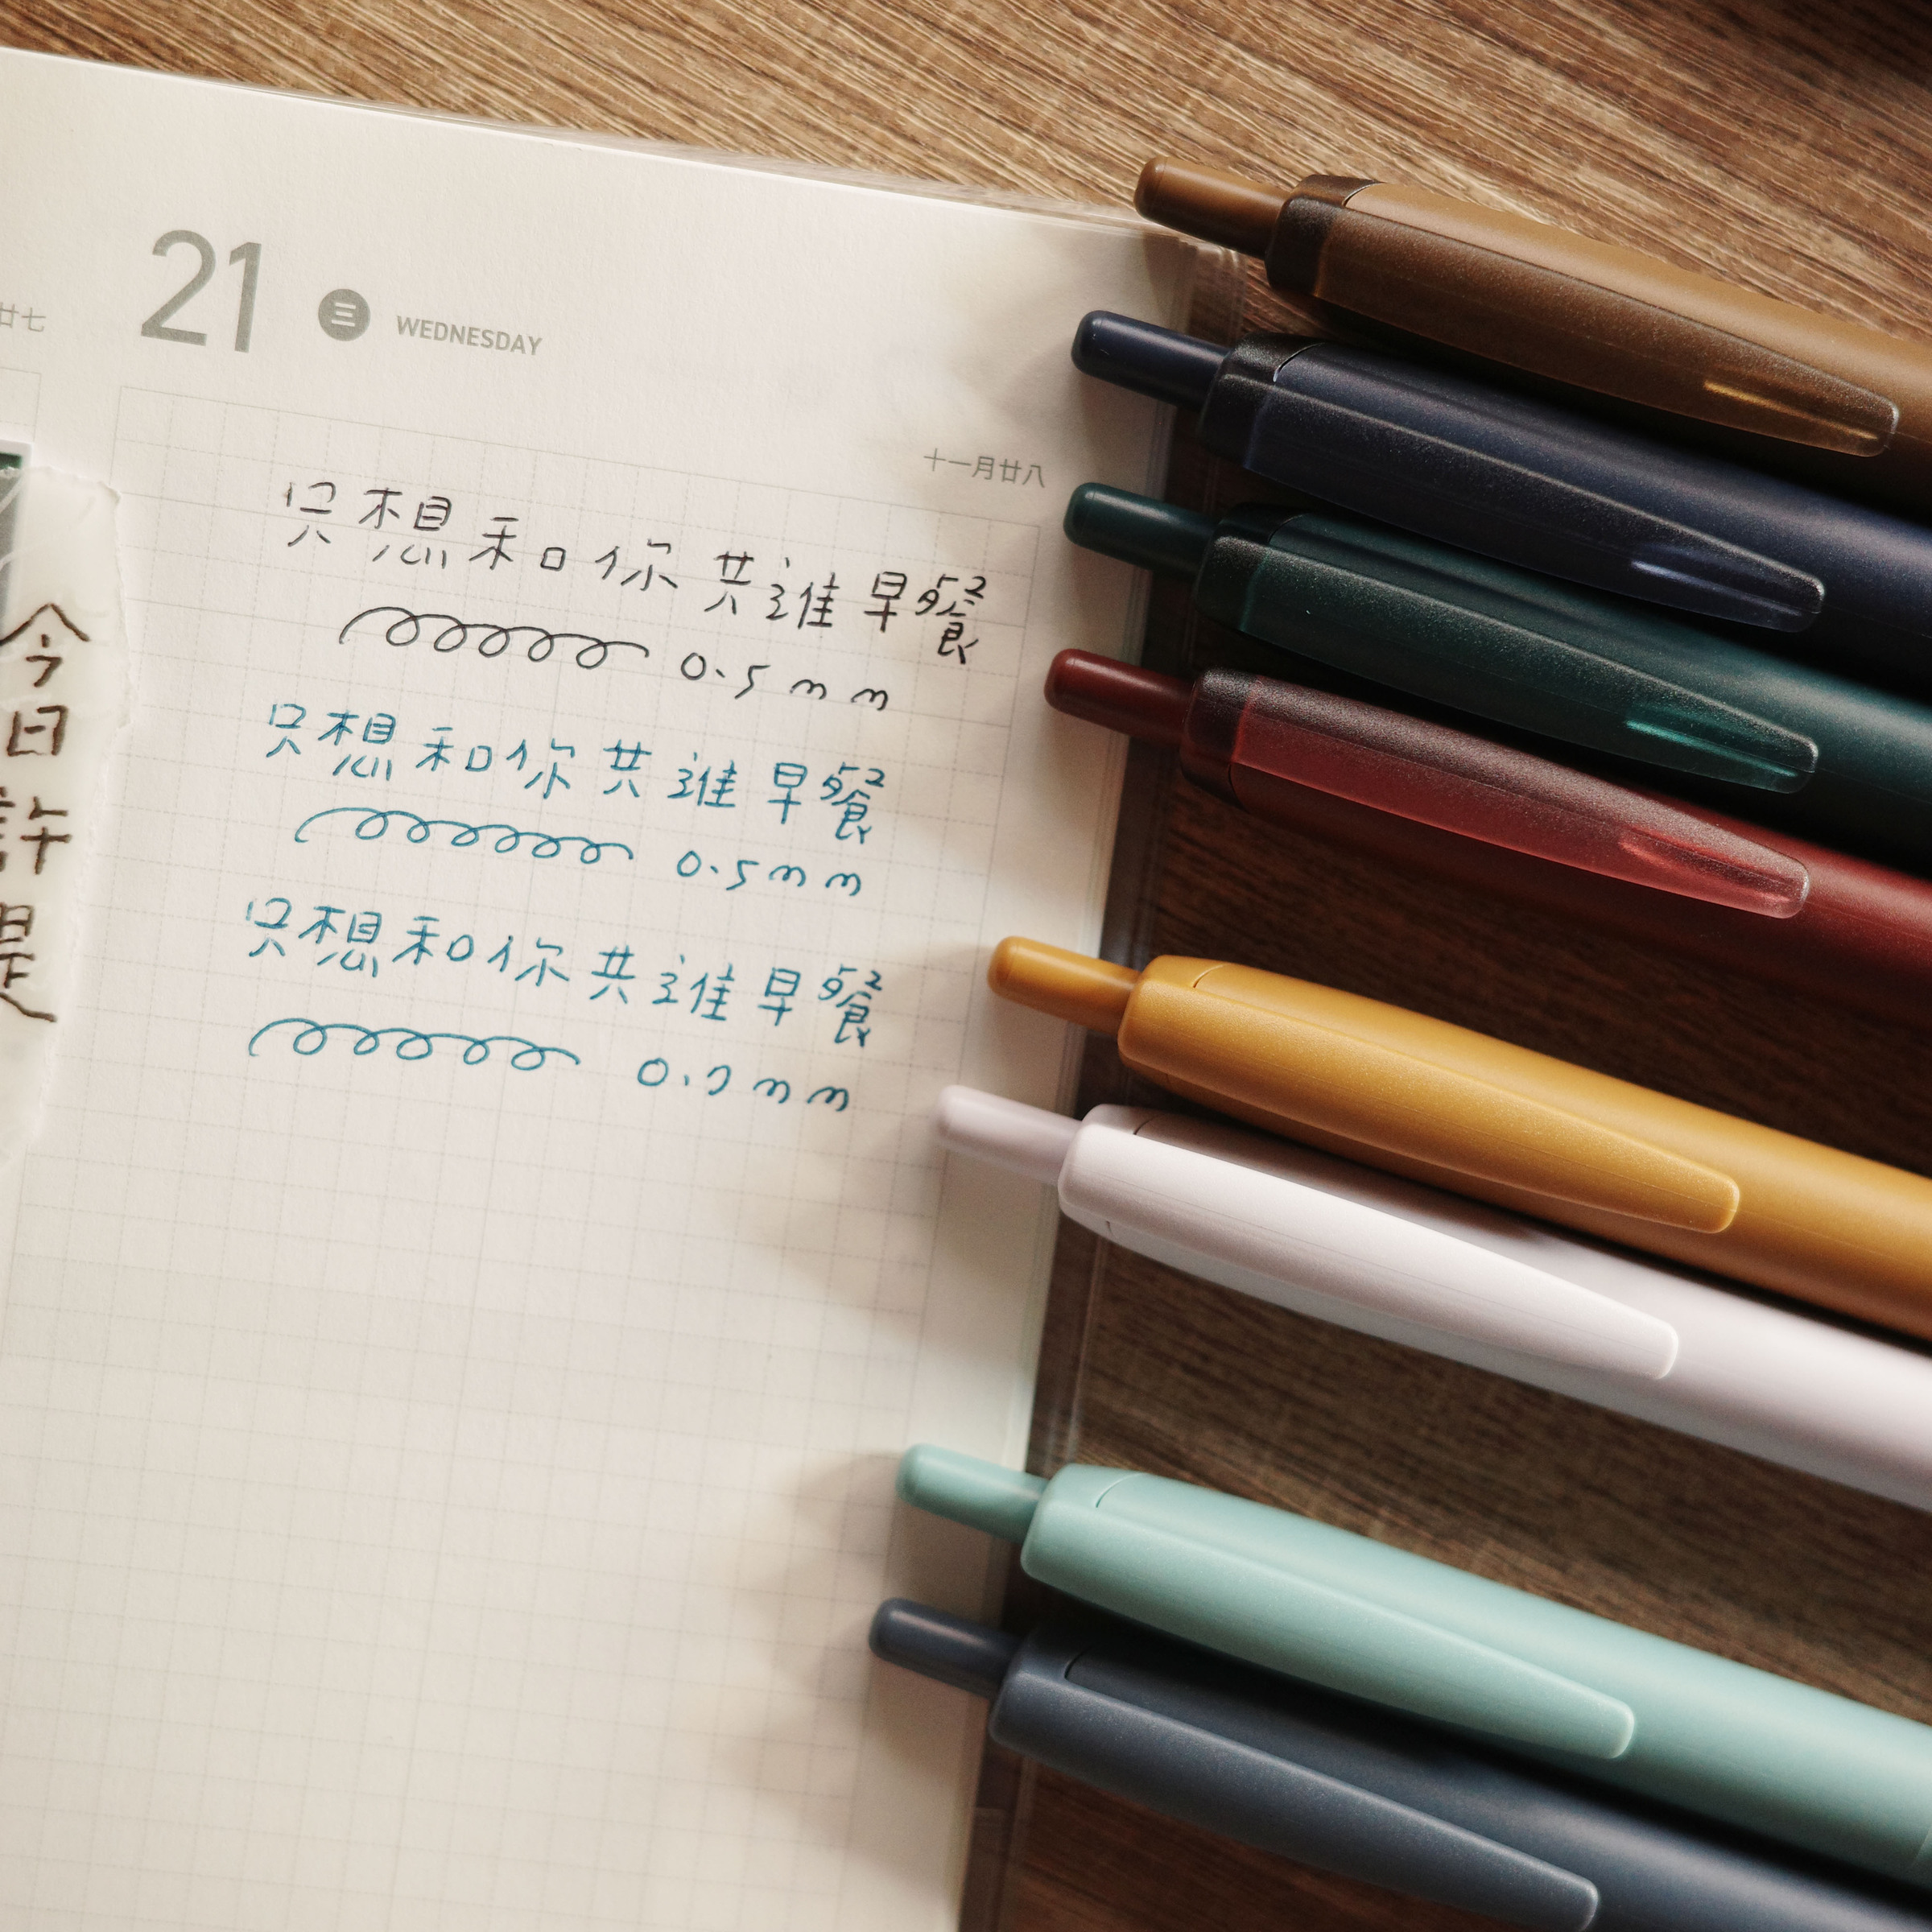 廿七
21 三 WEDNESDAY
十一月廿八
今日許是
只想和你共進早餐
0.5mm
只想和你共進早餐
0.5mm
只想和你共進早餐
0.7mm